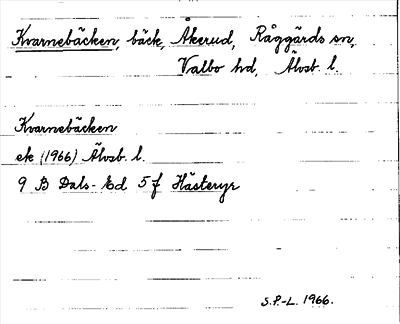 Kvarnebäcken, bäck, Åkerud, Råggärds sn,
Valbo hd, Älvsb. l.
Kvarnebäcken
ek (1966) Älvsb. l.
9 B Dals-Ed 5 f Hästeryr
S.P.-L. 1966.